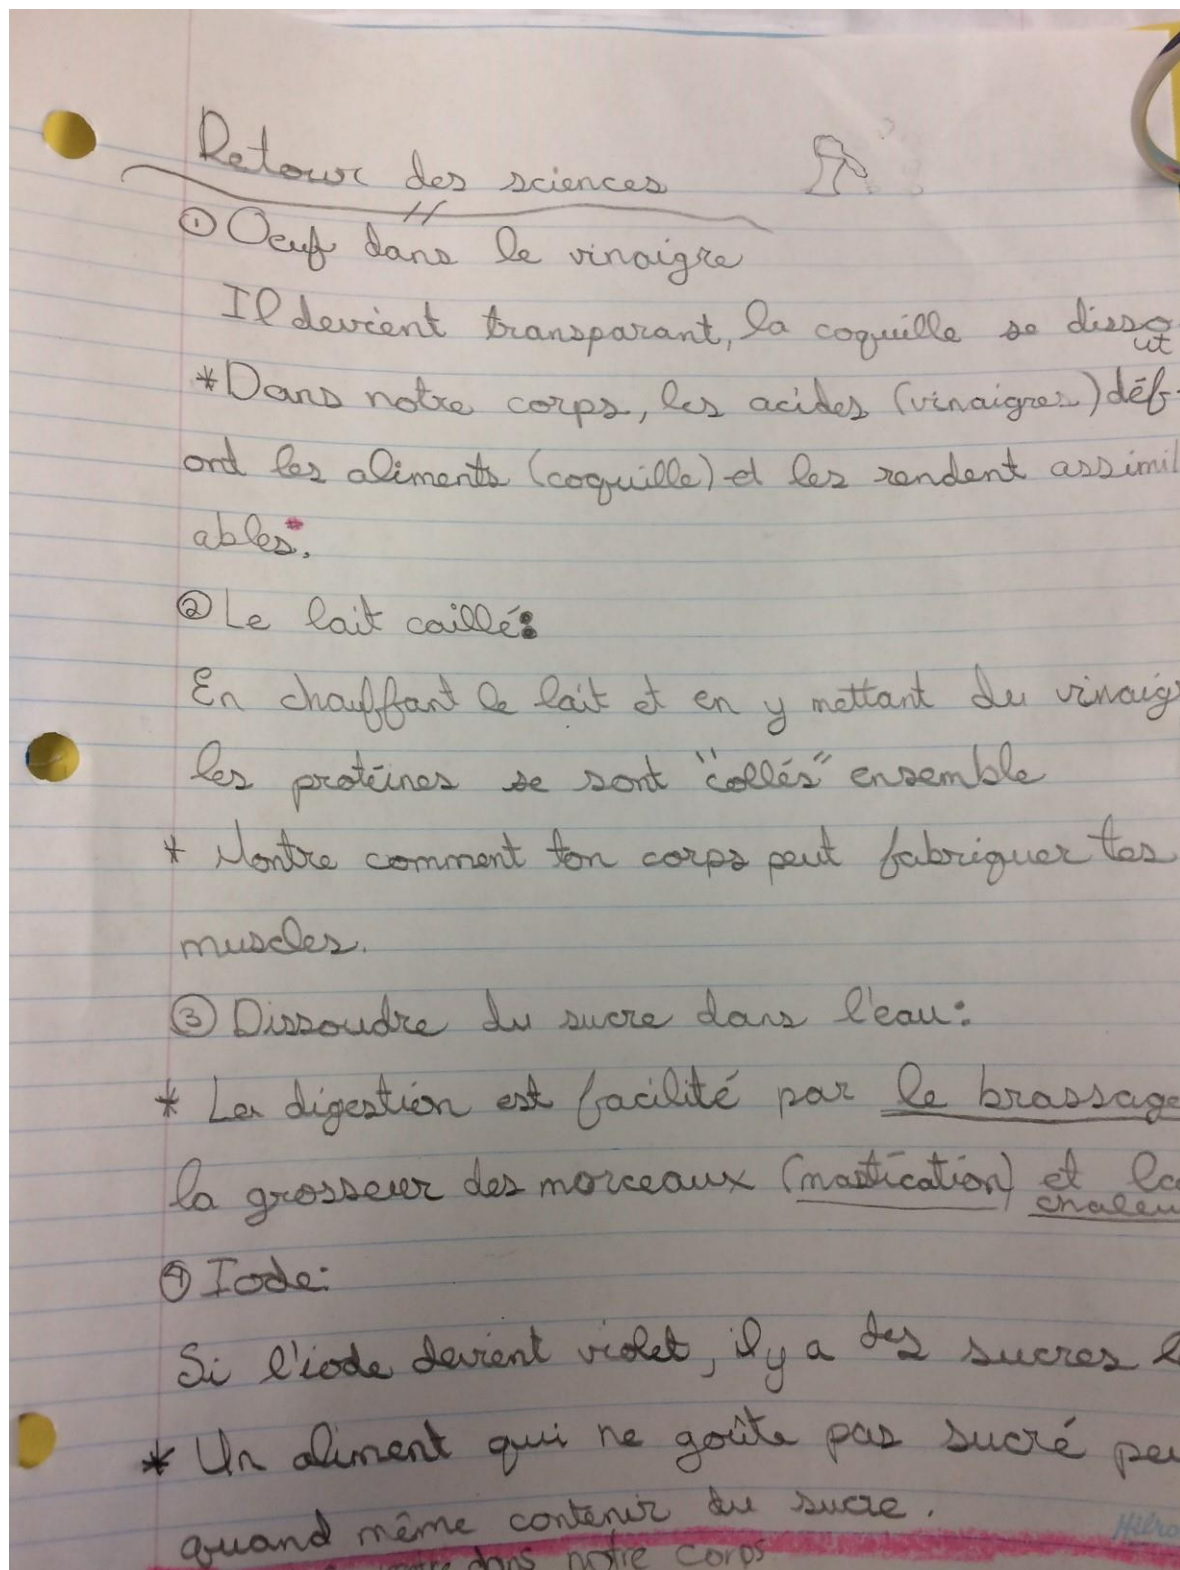 Retour des sciences
① Oeuf dans le vinaigre
Il devient transparant, la coquille se disso
ut
*Dans notre corps, les acides (vinaigres) déf-
ond les aliments (coquille) et les rendent assimil
ables.*
② Le lait caillé:
En chauffant le lait et en y mettant du vinaig
les protéines se sont "collés" ensemble
* Montre comment ton corps peut fabriquer tes
muscles.
③ Dissoudre du sucre dans l'eau:
* La digestion est facilité par le brassage
la grosseur des morceaux (mastication) et la
chaleu
④ Iode:
Si l'iode devient violet, il y a des sucres
* Un aliment qui ne goûte pas sucré peu
quand même contenir du sucre.
Hilro
dans notre corps